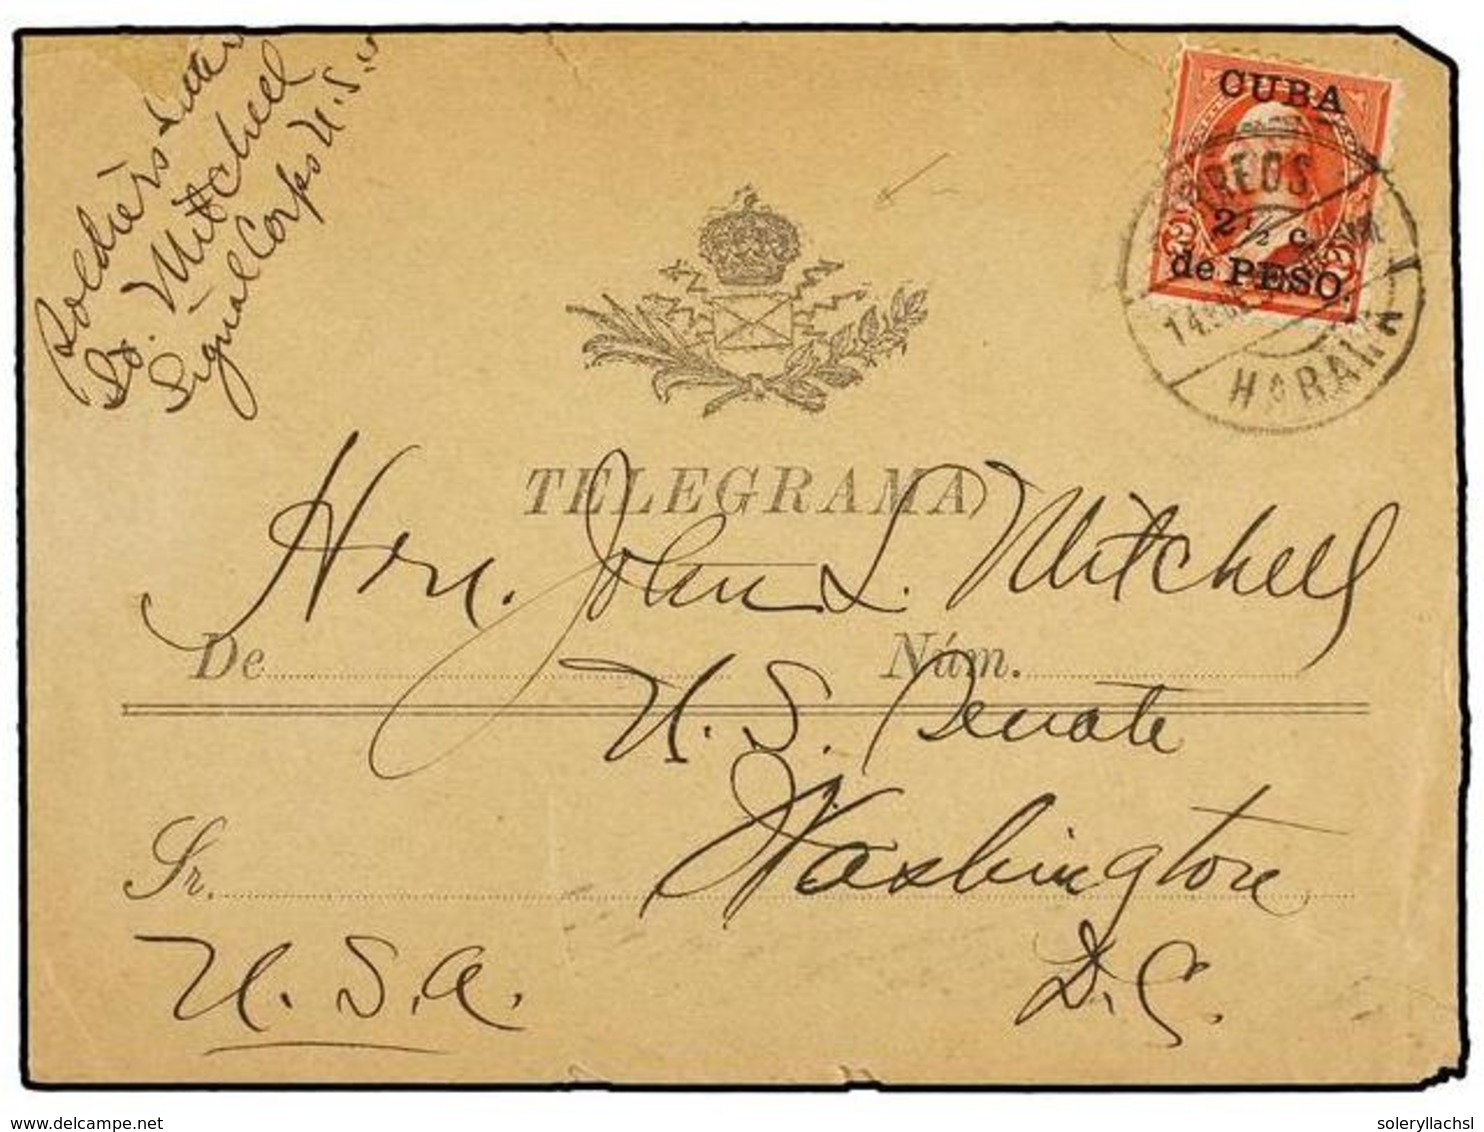 Soldier's Letter
Lt. Mitchell
Signal Corps U.S.
CUBA
2 1/2 c.
de PESO.
2 2
HABANA
TELEGRAMA
Hon. John L. Mitchell
De Núm.
U. S. Senate
Washington
Sr.
D. C.
U. S. A.
delcampe.net
soleryllachsl